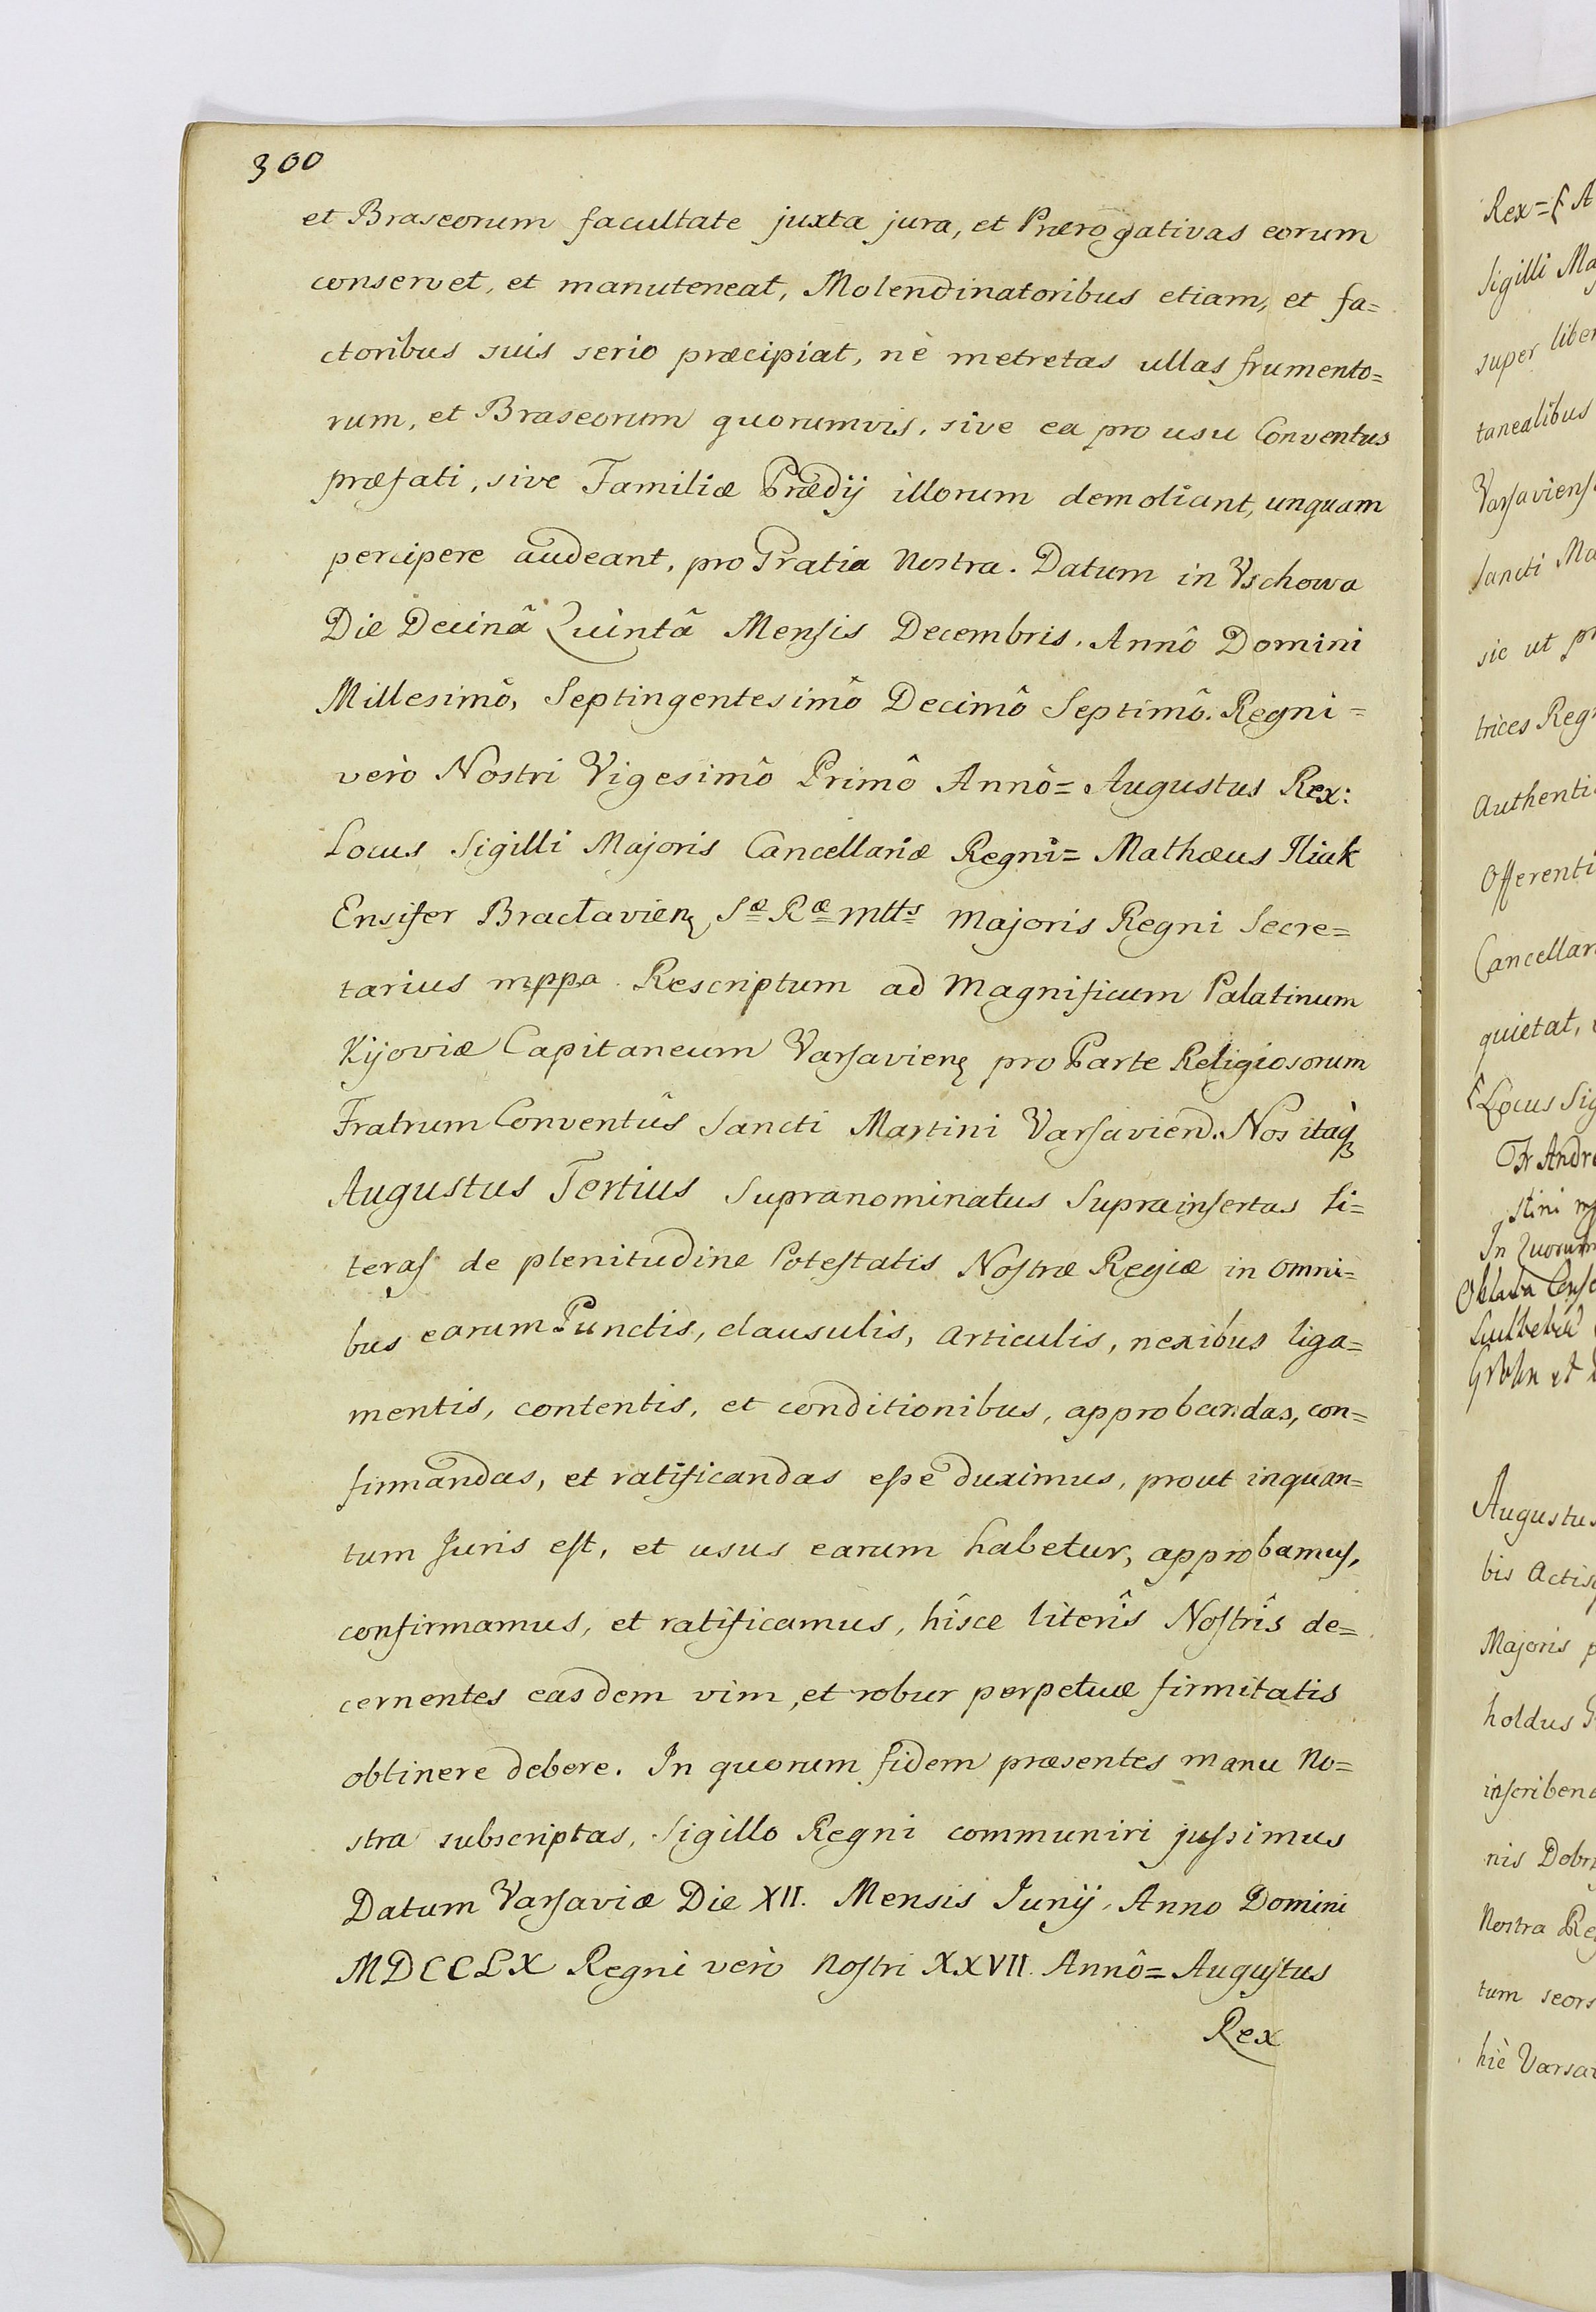 300
et Braseorum facultate juxta jura, et Prærogativas eorum
conservet, et manuteneat, Molendinatoribus etiam, et fa=
ctoribus suis serio præcipiat, nè metretas ullas frumento=
rum, et Braseorum quorumvis, sive ea pro usu Conventus
præfati, sive Familiæ Prædij illorum demoliant, unquam
percipere audeant, pro Gratia Nostra. Datum in Vschowa
Die Decimâ Quintâ Mensis Decembris. Annô Domini
Millesimô, Septingentesimô Decimô Septimô. Regni=
verò Nostri Vigesimô Primô Annô= Augustus Rex:
Locus Sigilli Majoris Cancellariæ Regni= Mathæus Iliak
Ensifer Bractavien, Sæ Ræ Mtts Majoris Regni Secre=
tarius mppa Rescriptum ad Magnificum Palatinum
Kijoviæ Capitaneum Varsavien, pro Parte Religiosorum
Fratrum Conventûs Sancti Martini Varsavien. Nos itaq
Augustus Tertius Supranominatus Suprainsertas Li=
teras de plenitudine Potestatis Nostræ Regiæ in omni=
bus earum Punctis, clausulis, articulis, nexibus liga=
mentis, contentis, et conditionibus, approbandas, con=
firmandas, et ratificandas esse duximus, prout inquan=
tum Juris est, et usus earum habetur, approbamus,
confirmamus, et ratificamus, hîsce literîs Nostrîs de=
cernentes easdem vim, et robur perpetuæ firmitatis
obtinere debere. In quorum fidem præsentes manu No=
stra subscriptas, Sigillo Regni communiri jussimus
Datum Varsaviæ Die XII. Mensis Junij. Anno Domini
MDCCLX Regni verò nostri XXVII. Annô= Augustus
Rex
Rex= A
Sigilli Ma
super liber
tanealibus
Varsaviens
Sancti Ma
sic ut pr
trices Reg
Authenti
Offerenti
Cancellar
quietat,
Locus Sig
Fr Andre
stini
In Quorum
Oblata
Augustus
bis Actis
Majoris p
holdus
inscribend
nis Dobr
Nostra Re
tum seors
hic Varsav